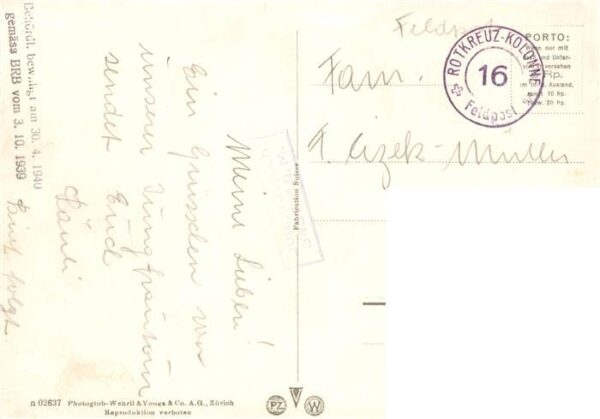 Behördl. bewilligt am 30. 4. 1940
gemäss BRB vom 3. 10. 1939
Meine Lieben!
Ein Grüsschen von
unserer Jungfrautour
sendet Euch
Päuli
Brief folgt.
n 02637 Photoglob-Wehrli & Vouga & Co. A.G., Zürich
Reproduktion verboten
Fabrication Suisse
PZ
W
Feldpost
ROTKREUZ-KOLONNE
16
Feldpost
PORTO:
nur mit
und Unter-
versehen
Rp.
Ausland,
10 Rp.
20 Rp.
Fam.
F. Cizek-Müller